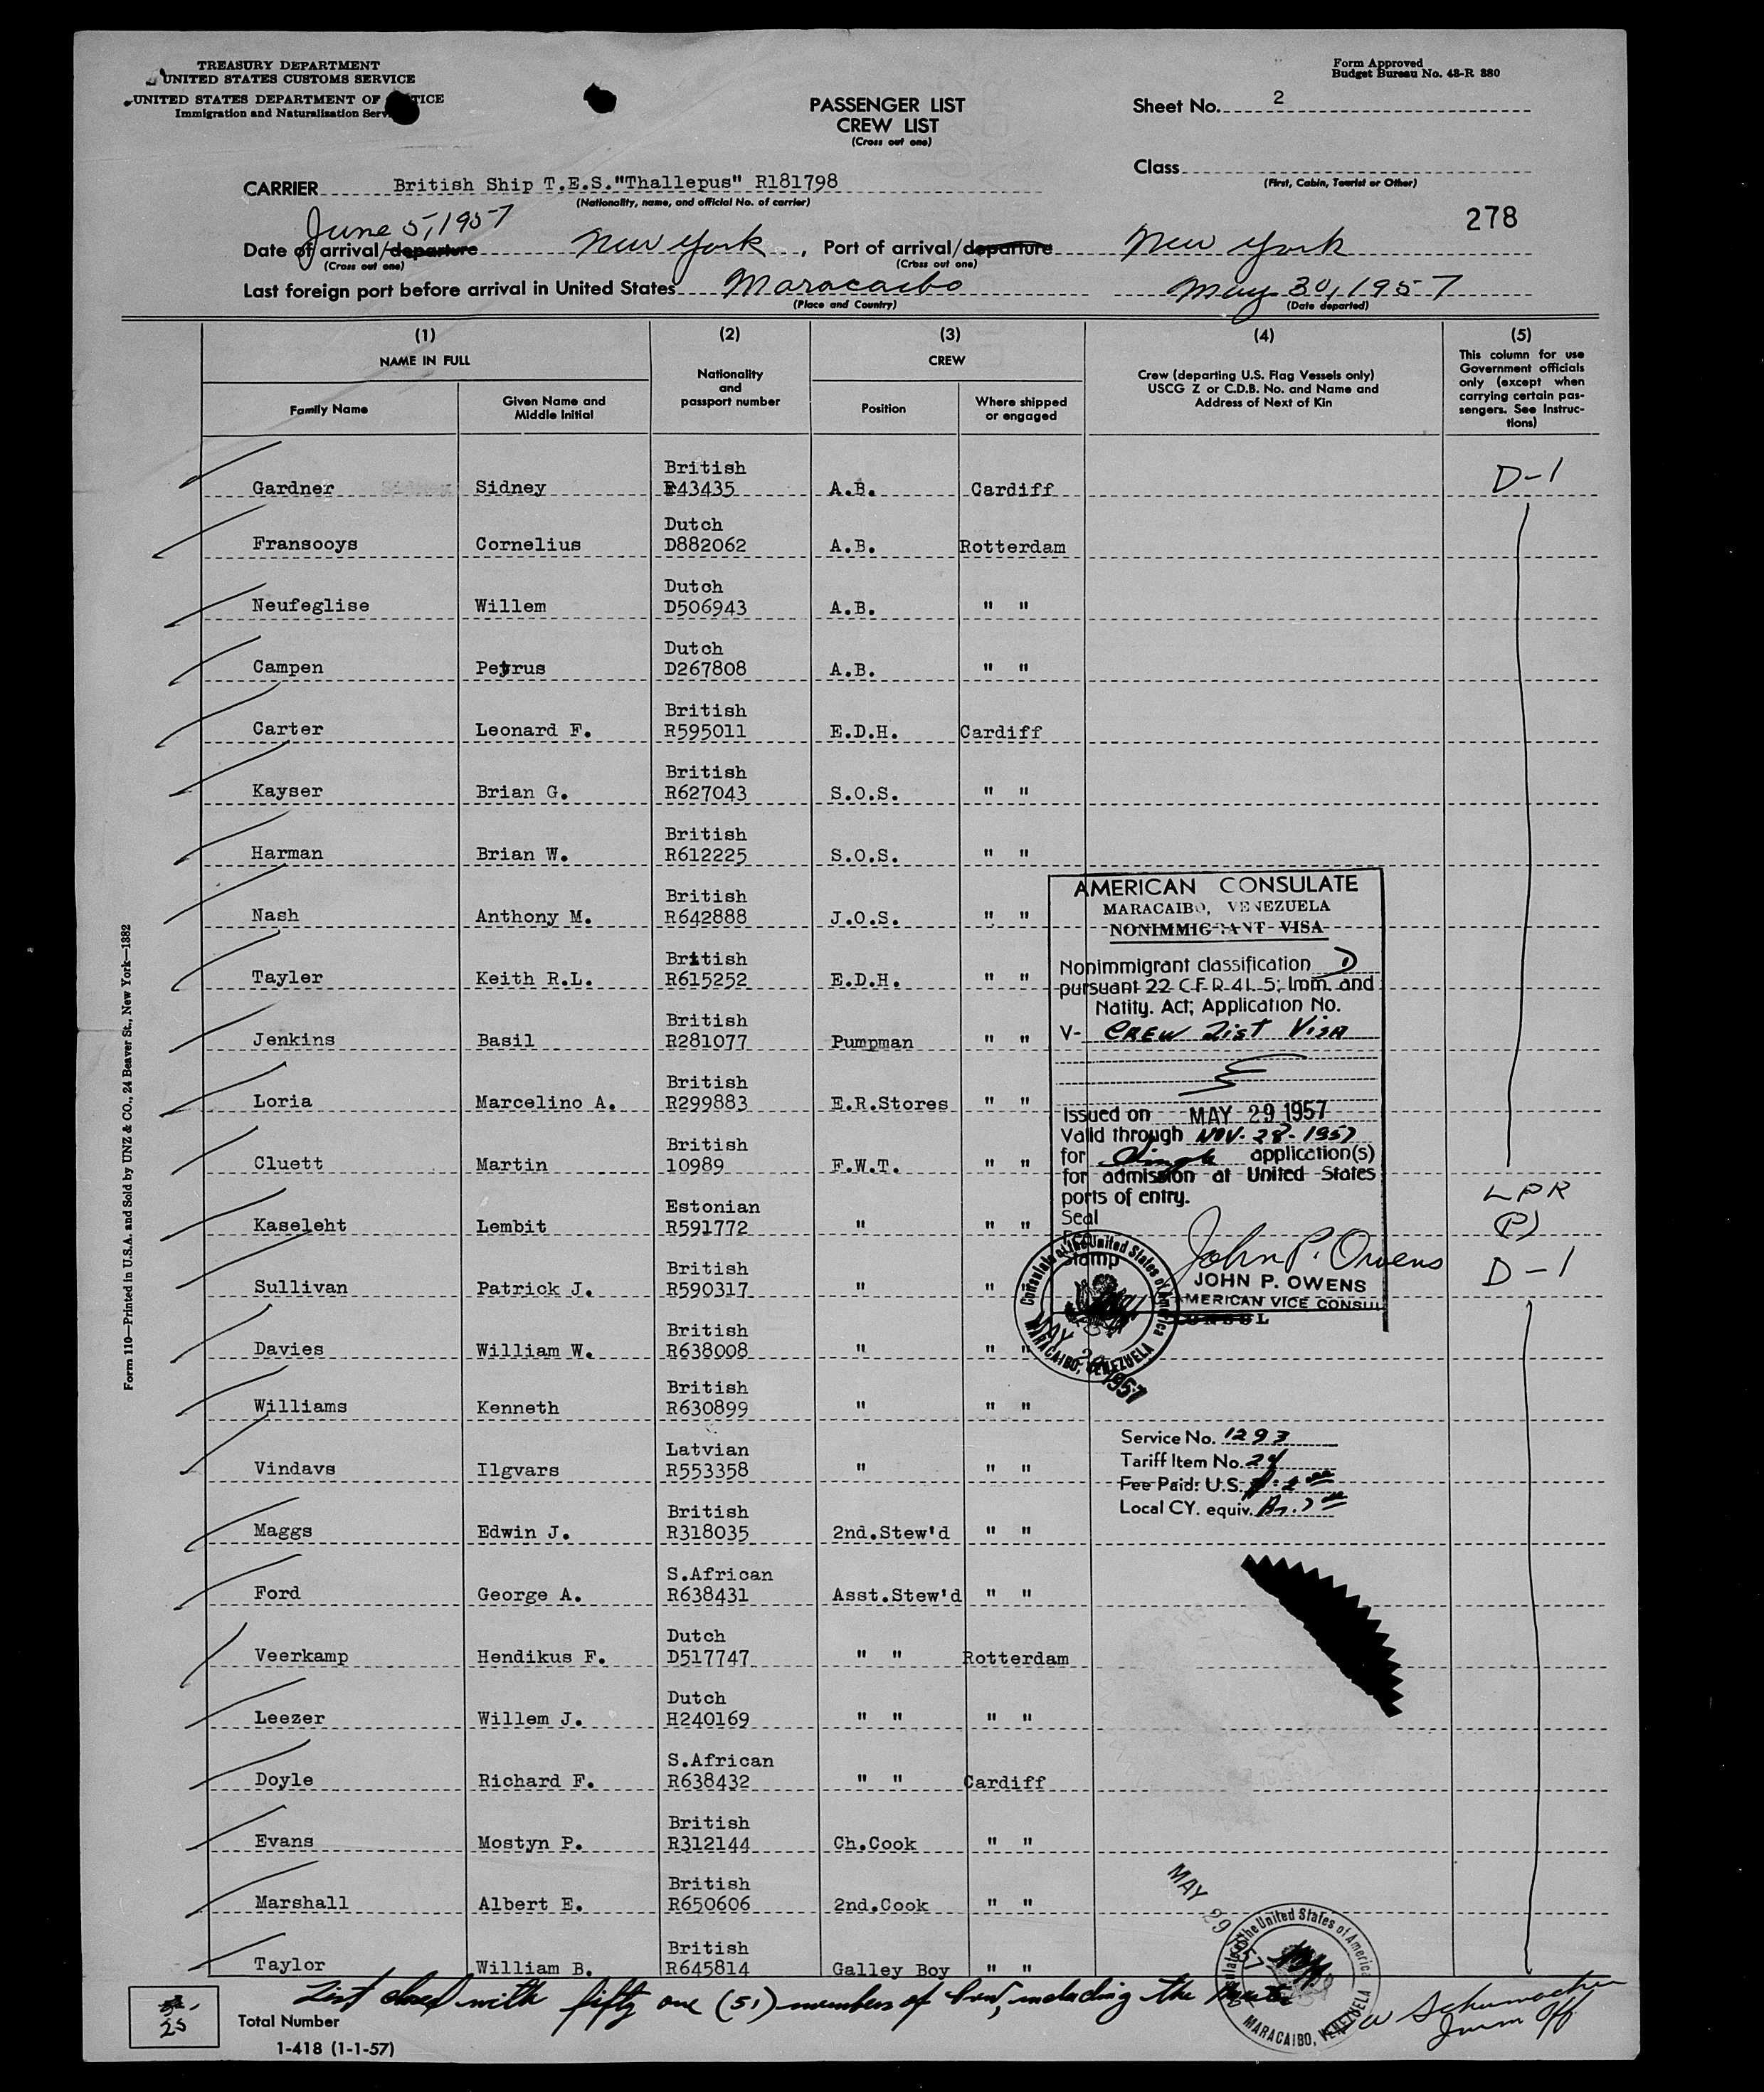 TREASURY DEPARTMENT
UNITED STATES CUSTOMS SERVICE
UNITED STATES DEPARTMENT OF TICE
Immigration and Naturalization Serv
Form Approved
Budget Bureau No. 43-R 380
PASSENGER LIST
CREW LIST
(Cross out one)
Sheet No. 2
Class
(First, Cabin, Tourist or Other)
CARRIER British Ship T.E.S."Thallepus" R181798
(Nationality, name, and official No. of carrier)
278
June 5, 1957
Date of arrival/departure New York, Port of arrival/departure New York
(Cross out one) (Cross out one)
Last foreign port before arrival in United States Maracaibo May 30, 1957
(Place and Country) (Date departed)
(1) (2) (3) (4) (5)
NAME IN FULL
Family Name
Given Name and Middle Initial
Nationality and passport number
CREW
Position
Where shipped or engaged
Crew (departing U.S. Flag Vessels only)
USCG Z or C.D.B. No. and Name and
Address of Next of Kin
This column for use
Government officials
only (except when
carrying certain pas-
sengers. See Instruc-
tions)
British
Gardner Sidney R43435 A.B. Cardiff D-1
Dutch
Fransooys Cornelius D882062 A.B. Rotterdam
Dutch
Neufeglise Willem D506943 A.B. " "
Dutch
Campen Petrus D267808 A.B. " "
British
Carter Leonard F. R595011 E.D.H. Cardiff
British
Kayser Brian G. R627043 S.O.S. " "
British
Harman Brian W. R612225 S.O.S. " "
British
Nash Anthony M. R642888 J.O.S. " "
British
Tayler Keith R.L. R615252 E.D.H. " "
British
Jenkins Basil R281077 Pumpman " "
British
Loria Marcelino A. R299883 E.R.Stores " "
British
Cluett Martin 10989 F.W.T. " "
Estonian
Kaseleht Lembit R591772 " " " LPR (P)
British
Sullivan Patrick J. R590317 " " D-1
British
Davies William W. R638008 " " "
British
Williams Kenneth R630899 " " "
Latvian
Vindavs Ilgvars R553358 " " "
British
Maggs Edwin J. R318035 2nd.Stew'd " "
S.African
Ford George A. R638431 Asst.Stew'd " "
Dutch
Veerkamp Hendikus F. D517747 " " Rotterdam
Dutch
Leezer Willem J. H240169 " " " "
S.African
Doyle Richard F. R638432 " " Cardiff
British
Evans Mostyn P. R312144 Ch.Cook " "
British
Marshall Albert E. R650606 2nd.Cook " "
British
Taylor William B. R645814 Galley Boy " "
AMERICAN CONSULATE
MARACAIBO, VENEZUELA
NONIMMIGRANT VISA
Nonimmigrant classification D
pursuant 22 C F R 41. 5; Imm. and
Natlty. Act; Application No.
V- CREW List Visa
Issued on MAY 29 1957
Valid through NOV. 28 - 1957
for Single application(s)
for admission at United States
ports of entry.
Seal
Fee
Stamp
John P. Owens
JOHN P. OWENS
AMERICAN VICE CONSUL
CONSUL
Consulate of the United States of America
MARACAIBO, VENEZUELA
MAY 29 1957
Service No. 1293
Tariff Item No. 24
Fee Paid: U.S.
Local CY. equiv.
MAY 29 1957
Consulate of the United States of America
MARACAIBO, VENEZUELA
List closed with fifty one (51) members of Crew, including the Master
25
Total Number
I-418 (1-1-57)
Schumacher
Imm Off
Form 110—Printed in U.S.A. and Sold by UNZ & CO., 24 Beaver St., New York—1382